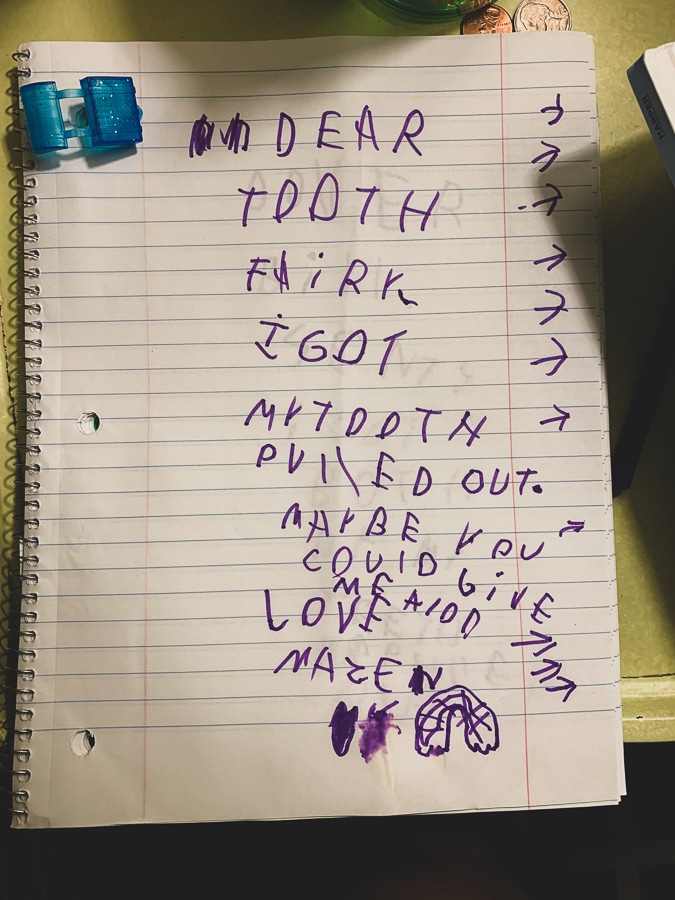 DEAR →
TOOTH →
FAiRY →
I GOT →
MY TOOTH →
PUllED OUT.
MAYBE YOU →
COUlD GiVE
ME A 100
LOVE →
MAZEN →
HARPER